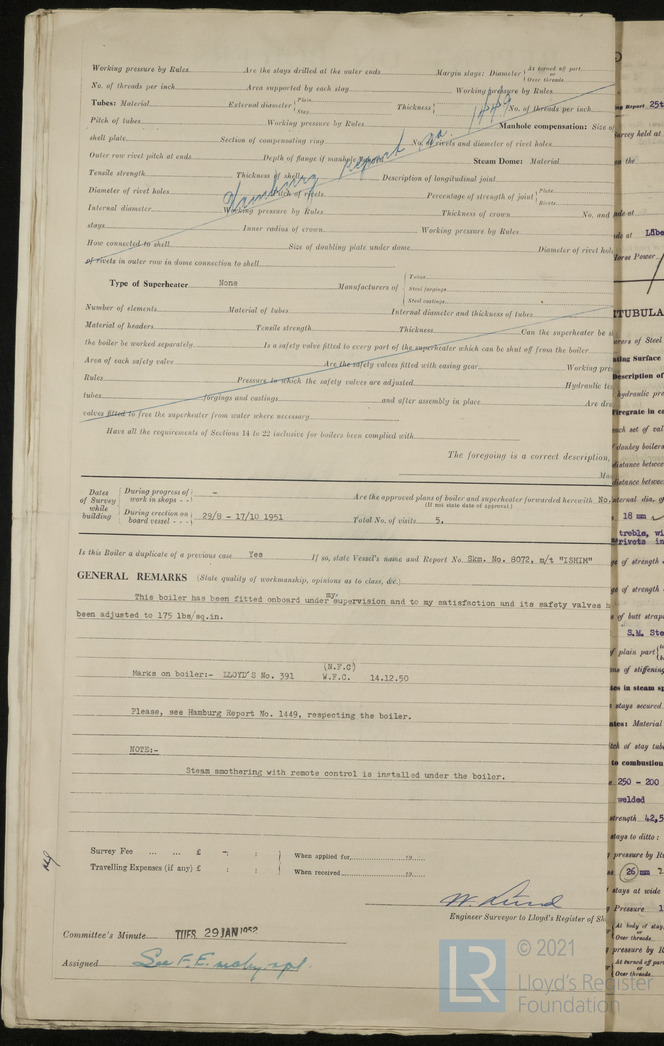 Working pressure by Rules Are the stays drilled at the outer ends Margin stays: Diameter { At turned off part or Over threads
No. of threads per inch Area supported by each stay Working pressure by Rules
Tubes: Material External diameter { Plain Stay Thickness { No. of threads per inch
Pitch of tubes Working pressure by Rules Manhole compensation: Size o
shell plate Section of compensating ring No. of rivets and diameter of rivet holes
Outer row rivet pitch at ends Depth of flange if manhole flanged Steam Dome: Material
Tensile strength Thickness of shell Description of longitudinal joint
Diameter of rivet holes Pitch of rivets Percentage of strength of joint { Plate Rivets
Hamburg Report no. 1449
Internal diameter Working pressure by Rules Thickness of crown No. and
stays Inner radius of crown Working pressure by Rules
How connected to shell Size of doubling plate under dome Diameter of rivet hol
of rivets in outer row in dome connection to shell
Type of Superheater None Manufacturers of { Tubes Steel forgings Steel castings
Number of elements Material of tubes Internal diameter and thickness of tubes
Material of headers Tensile strength Thickness Can the superheater be s
the boiler be worked separately Is a safety valve fitted to every part of the superheater which can be shut off from the boiler
Area of each safety valve Are the safety valves fitted with easing gear Working pre
Rules Pressure to which the safety valves are adjusted Hydraulic tes
tubes forgings and castings and after assembly in place Are dra
valves fitted to free the superheater from water where necessary
Have all the requirements of Sections 14 to 22 inclusive for boilers been complied with
The foregoing is a correct description,
Dates of Survey while building { During progress of work in shops - - } -
Are the approved plans of boiler and superheater forwarded herewith No.
(If not state date of approval.)
{ During erection on board vessel - - - } 29/8 - 17/10 1951 Total No. of visits 5.
Is this Boiler a duplicate of a previous case Yes If so, state Vessel's name and Report No. Skm. No. 8072, m/t "ISHIM"
GENERAL REMARKS (State quality of workmanship, opinions as to class, &c.)
This boiler has been fitted onboard under my supervision and to my satisfaction and its safety valves h
been adjusted to 175 lbs/sq.in.
(N.F.C)
Marks on boiler:- LLOYD'S No. 391 W.F.C. 14.12.50
Please, see Hamburg Report No. 1449, respecting the boiler.
NOTE:-
Steam smothering with remote control is installed under the boiler.
Survey Fee ... ... £ -: : When applied for 19
Travelling Expenses (if any) £ : : When received 19
Engineer Surveyor to Lloyd's Register of Sh
Committee's Minute TUES. 29 JAN 1952
Assigned See F.E. mchy. rpt.
© 2021
LR Lloyd's Register
Foundation
Report 25t
Survey held at
on the
Lübe
Horse Power
ITUBULA
ers of Steel
ting Surface
Description of
hydraulic pre
Firegrate in ea
each set of val
donkey boilers
distance between
distance between
nternal dia. of
18 mm
treble, wi
rivets in
ge of strength
ge of strength
of butt straps
S.M. Ste
plain part
ns of stiffening
tes in steam sp
stays secured
ates: Material
tch of stay tub
to combustion
250 - 200
welded
strength 42,5
stays to ditto:
pressure by Ru
26 mm
stays at wide
Pressure
At body of stay, or Over threads
pressure by R
At turned off part or Over threads